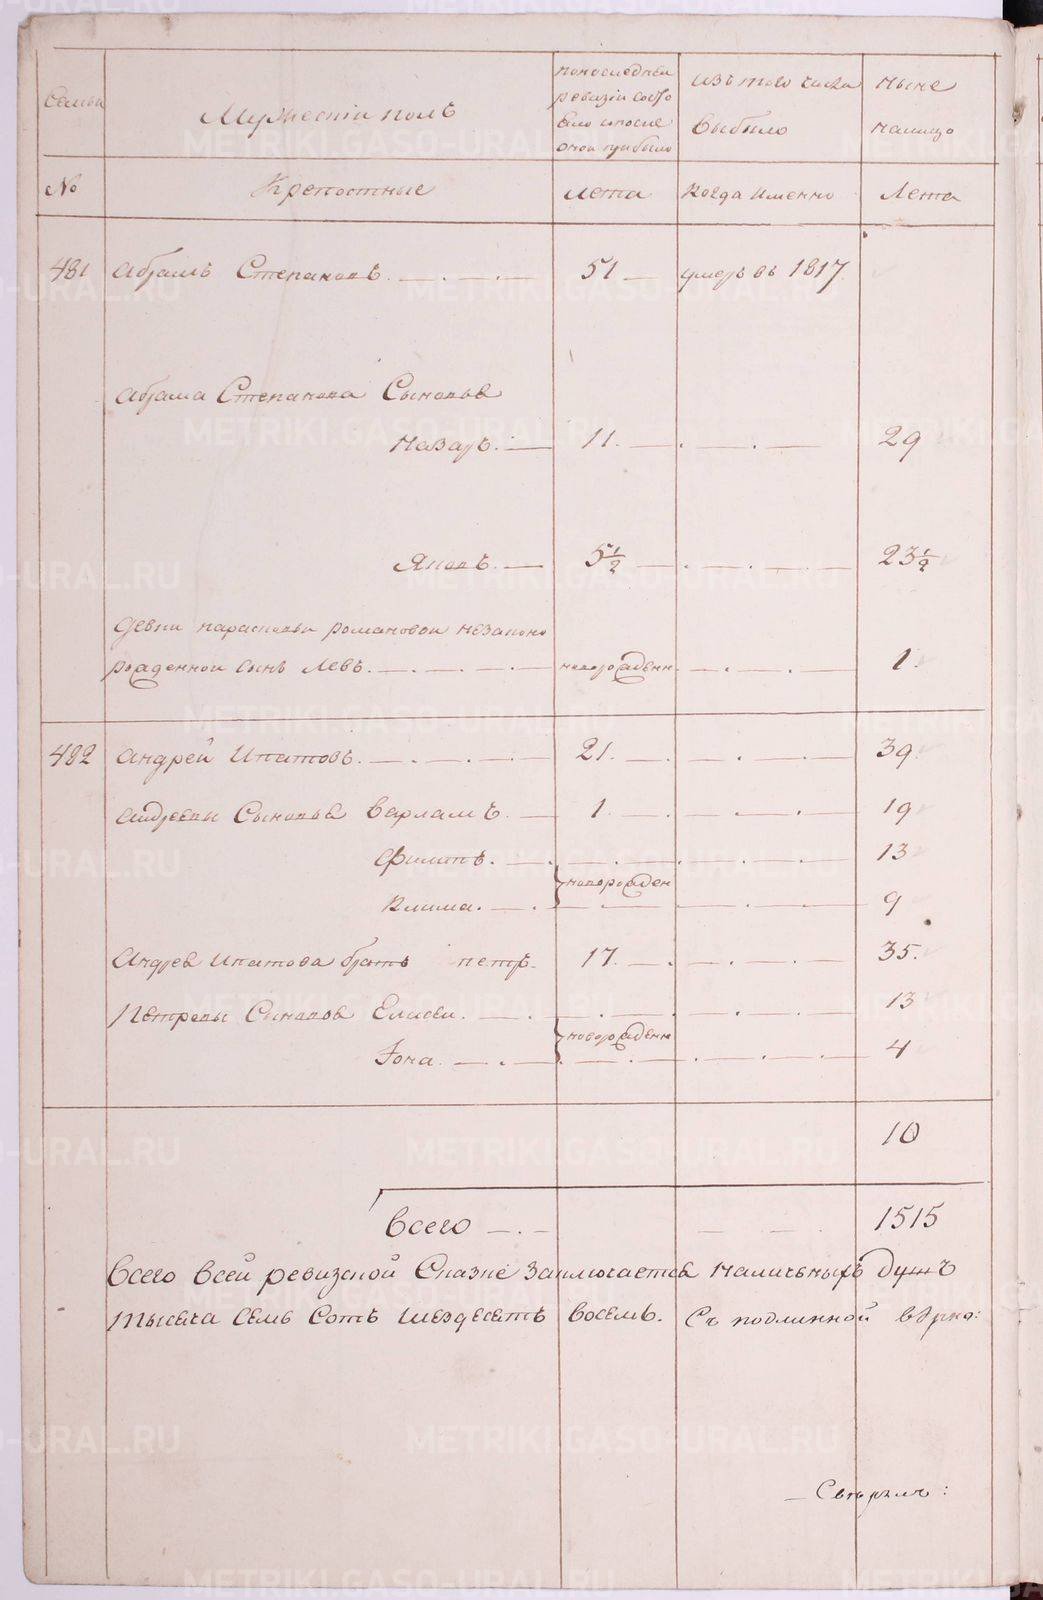 Семьи
Мужескiй полъ
по последней ревизiи состояло и после оной прибыло
изъ того числа выбыло
ныне налицо
№
Крепостные
лета
когда именно
Лета
481 Абрамъ Степановъ. 51 умеръ въ 1817.
Абрама Степанова Сыновья
Назаръ. 11. 29
Яковъ. 5 1/2 23 1/2
Девки парасковьи романовой незаконно
рожденной сынъ Левъ. новорожденн. 1.
482 Андрей Ипатовъ. 21. 39.
Андреевы Сыновья Варламъ. 1. 19
Филипъ. 13
новорожден
Клима. 9
Андрея Ипатова братъ петръ. 17. 35.
Петровы Сыновья Елисеи. 13
новорожденн
Iона. 4
10
Всего 1515
Всего Всей ревизской Сказке Заключается наличныхъ душъ
тысяча семь Сотъ шездесятъ восемь. Съ подлинной верна:
METRIKI.GASO-URAL.RU